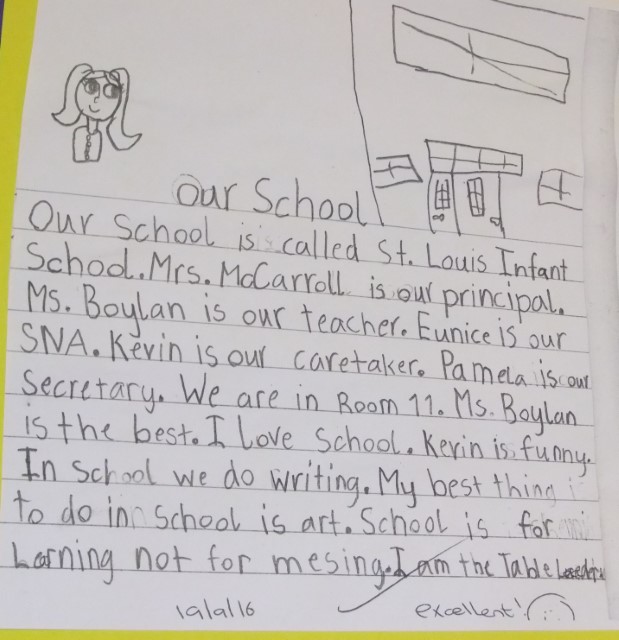 Our School
Our School is called St. Louis Infant
School. Mrs. McCarroll is our principal.
Ms. Boylan is our teacher. Eunice is our
SNA. Kevin is our caretaker. Pamela is our
Secretary. We are in Room 11. Ms. Boylan
is the best. I Love School. Kevin is funny.
In School we do writing. My best thing
to do in school is art. School is for
Larning not for mesing. I am the Table
19/9/16 excellent!